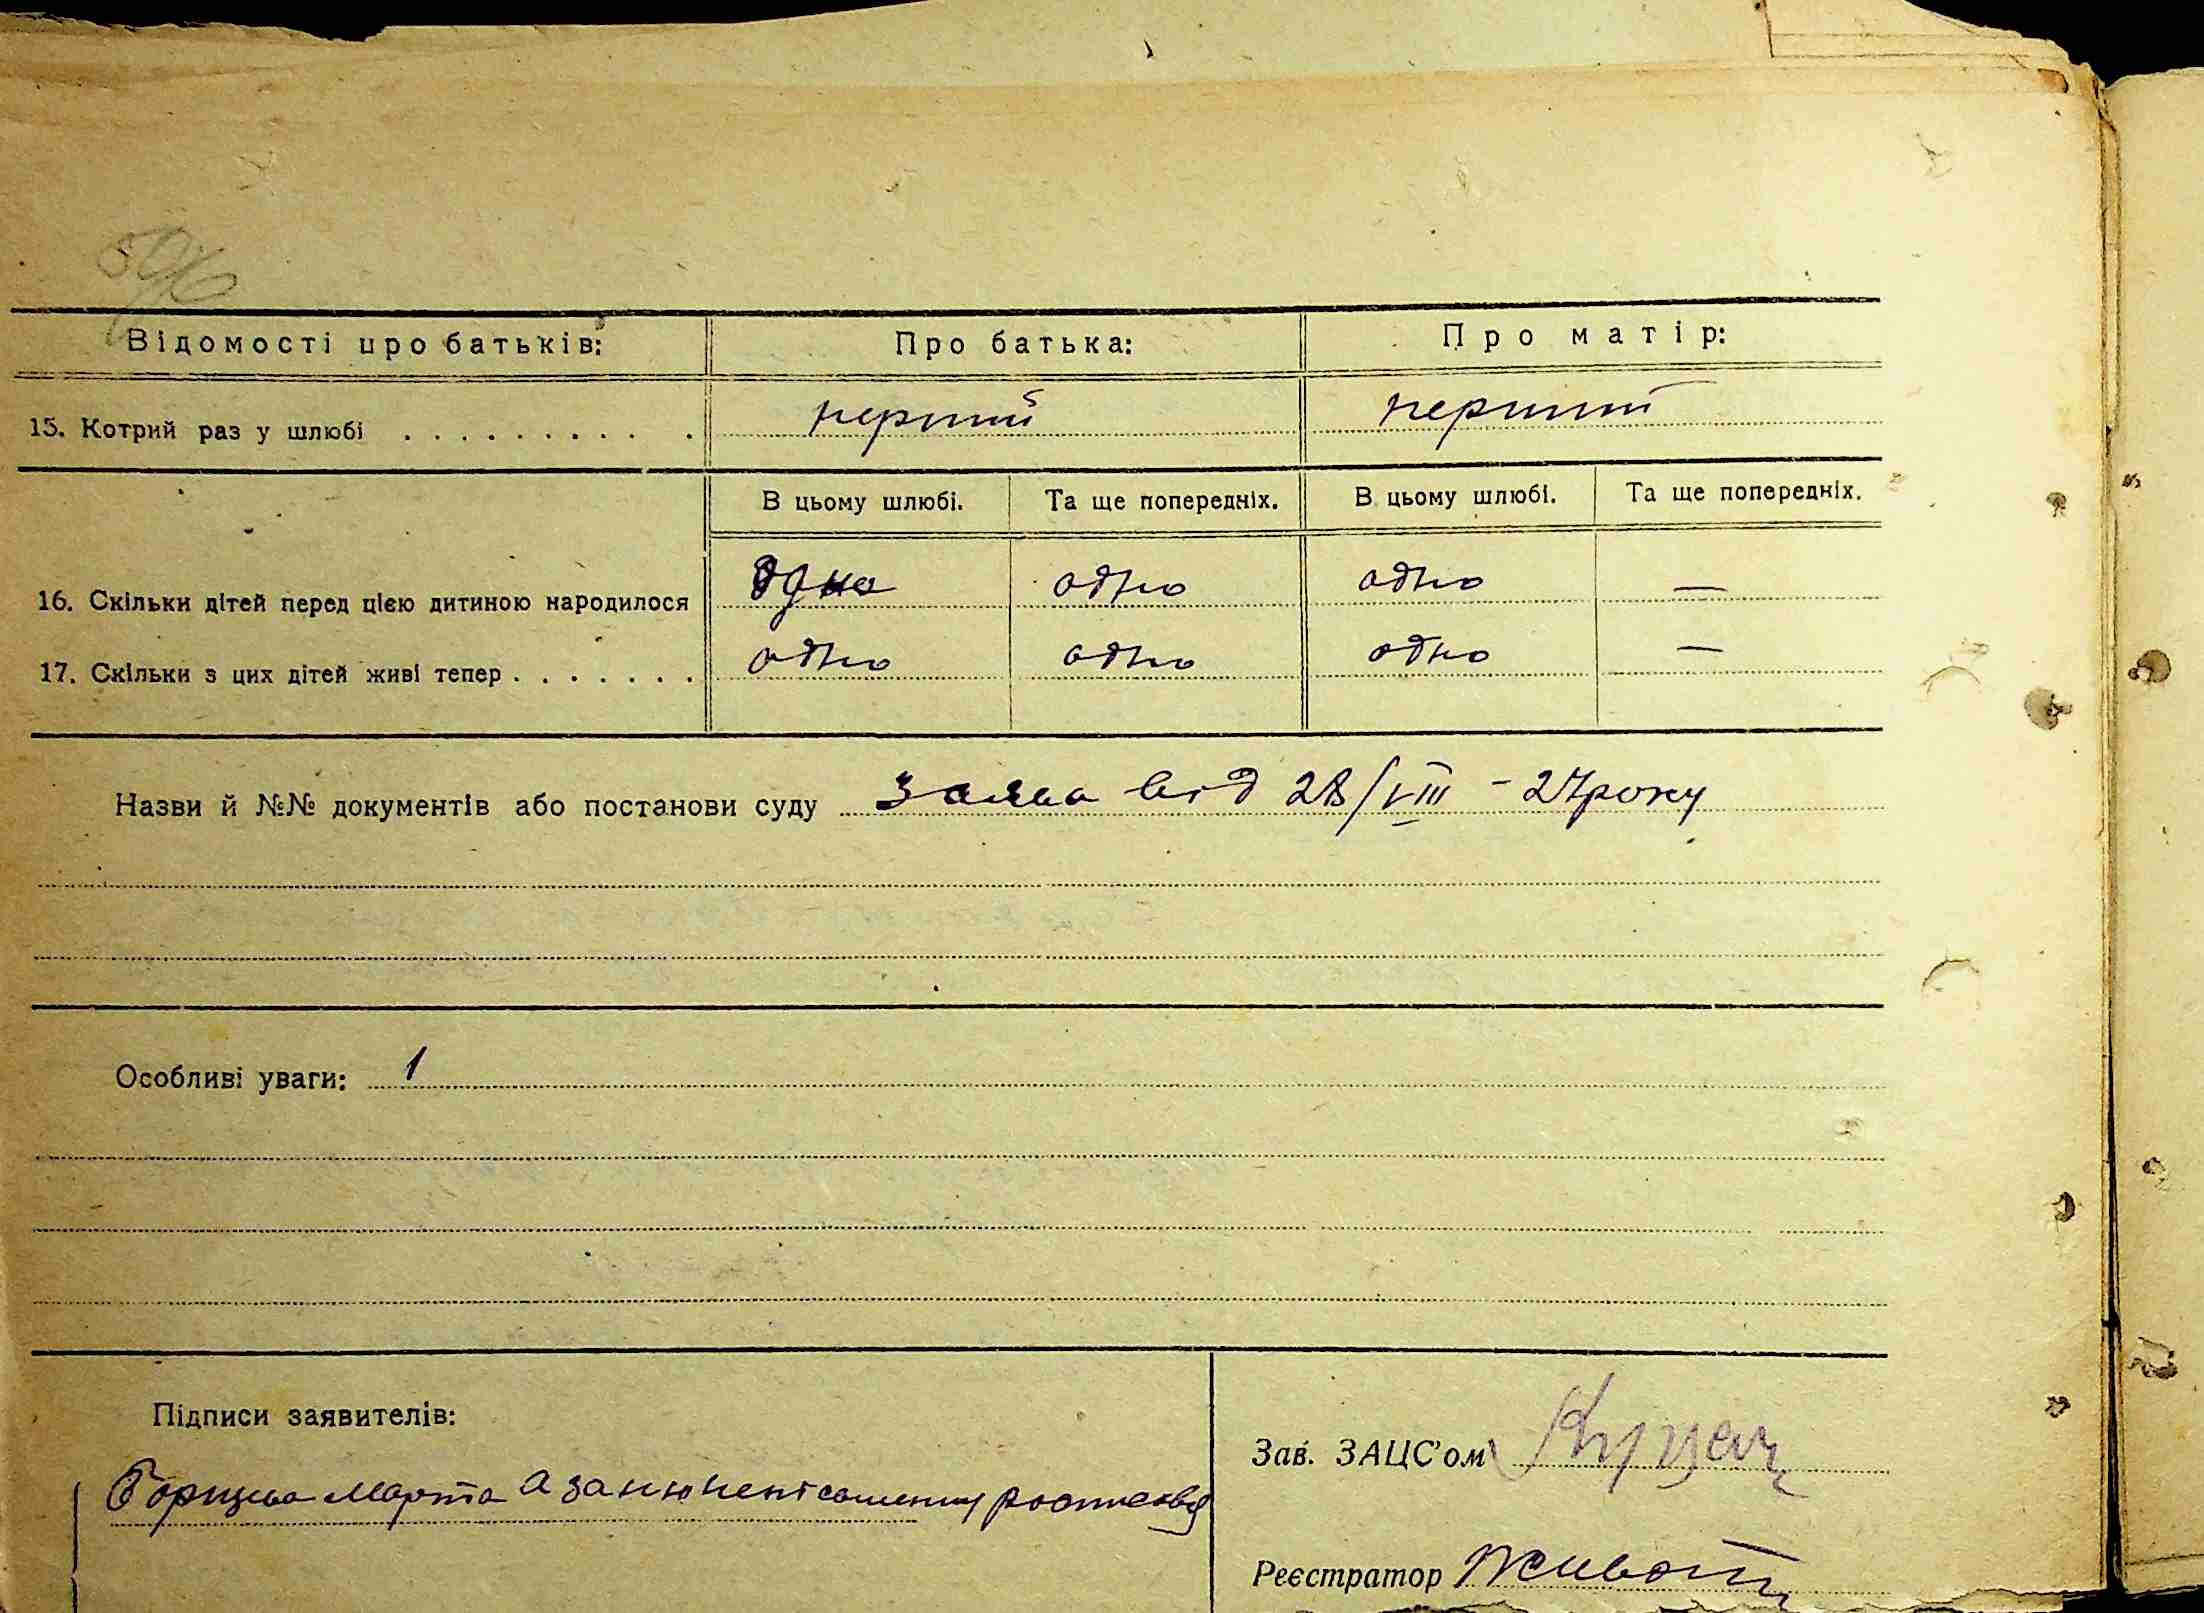 Відомості про батьків: Про батька: Про матір:
15. Котрий раз у шлюбі . . . . . . . . . . . перший перший
В цьому шлюбі. Та ще попередніх. В цьому шлюбі. Та ще попередніх.
16. Скільки дітей перед цією дитиною народилося одно одно одно —
17. Скільки з цих дітей живі тепер . . . . . . . одно одно одно —
Назви й №№ документів або постанови суду заява від 28/VIII - 27 року
Особливі уваги: 1
Підписи заявителів:
Зав. ЗАЦС'ом
Марта а за
Реєстратор